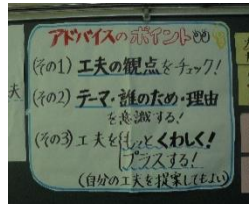 アドバイスのポイント
(その1) 工夫の観点をチェック!
(その2) テーマ・誰のため・理由
を意識する!
(その3) 工夫をもっとくわしく!
プラスする!
(自分の工夫を提案してもよい)
夫